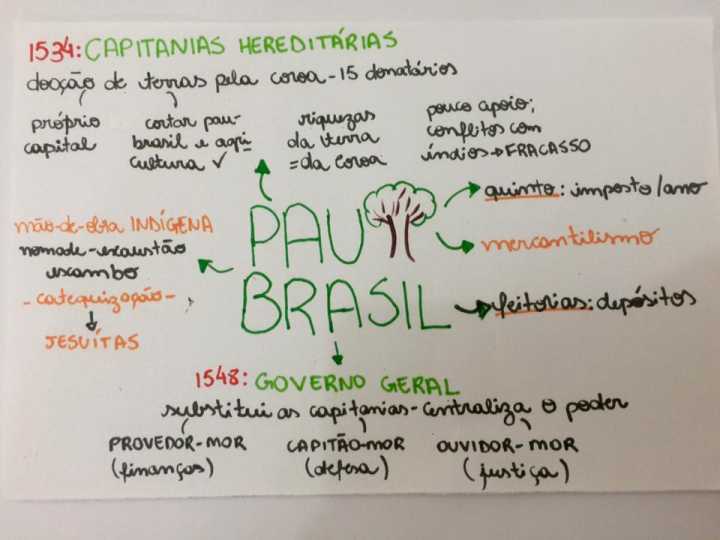 1534: CAPITANIAS HEREDITÁRIAS
doação de terras pela coroa - 15 donatários
próprio
capital
cortar pau-
brasil e agri
cultura ✓
riquezas
da terra
= da Coroa
pouco apoio;
conflitos com
índios → FRACASSO
PAU
BRASIL
quinto: imposto/ano
mercantilismo
feitorias: depósitos
mão-de-obra INDÍGENA
nomade - exaustão
escambo
- catequização -
JESUÍTAS
1548: GOVERNO GERAL
substitui as capitanias - Centraliza o poder
PROVEDOR-MOR
(finanças)
CAPITÃO-MOR
(defesa)
OUVIDOR-MOR
(justiça)